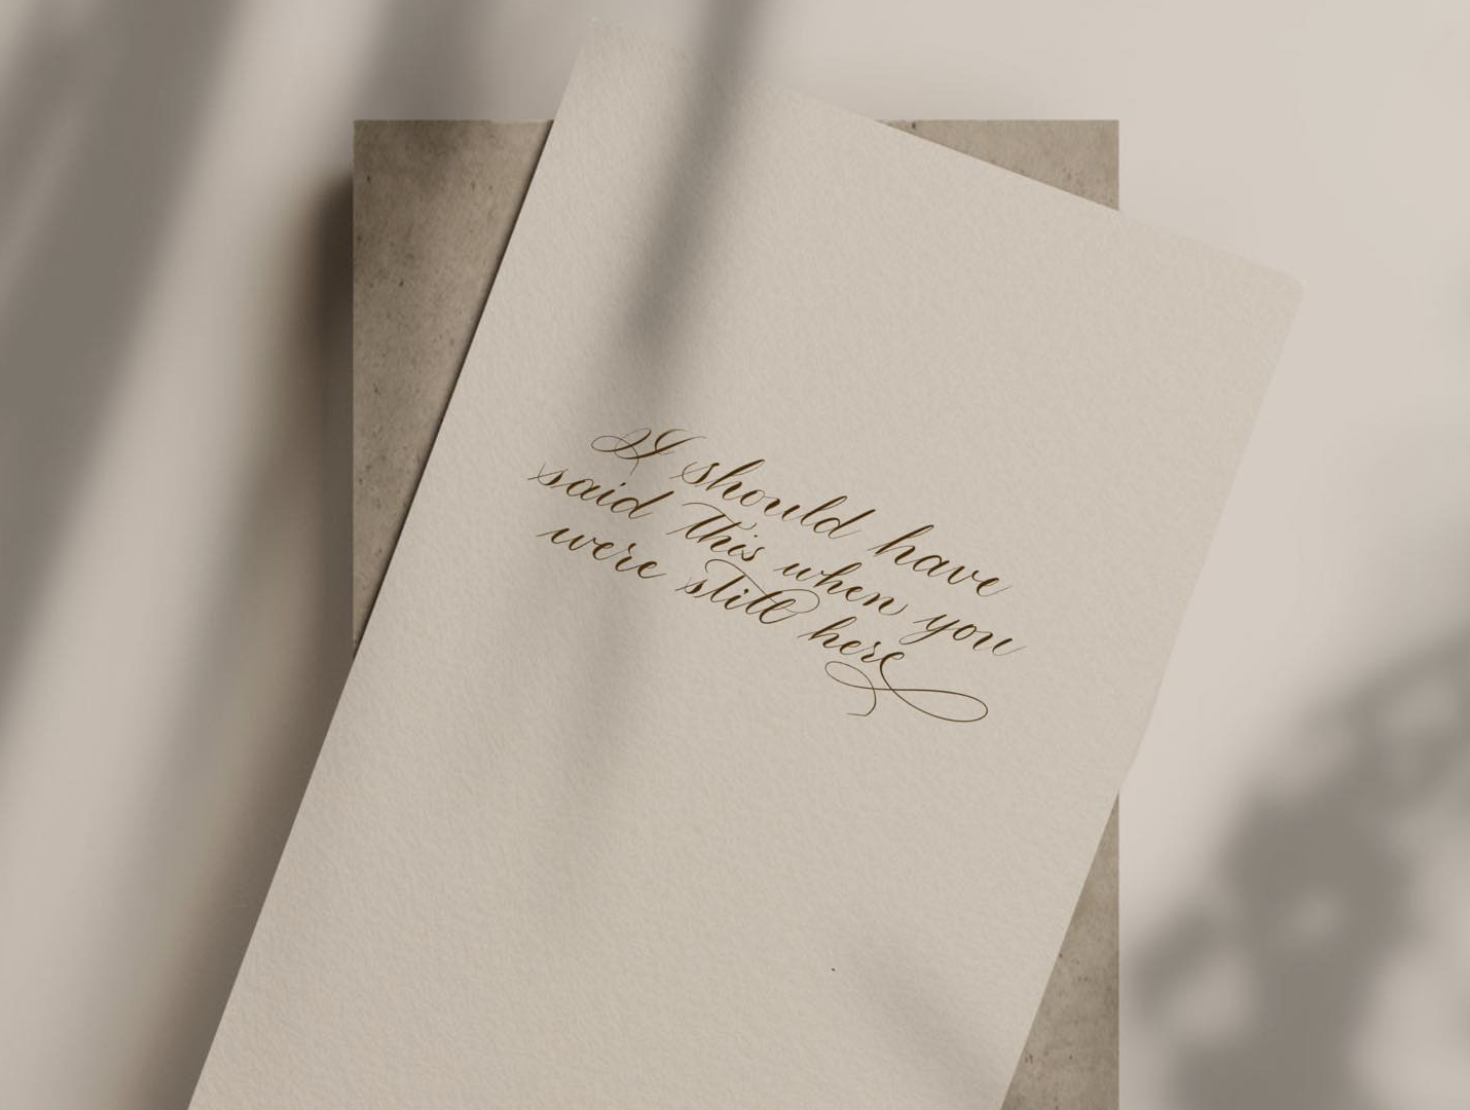 I should have
said this when you
were still here